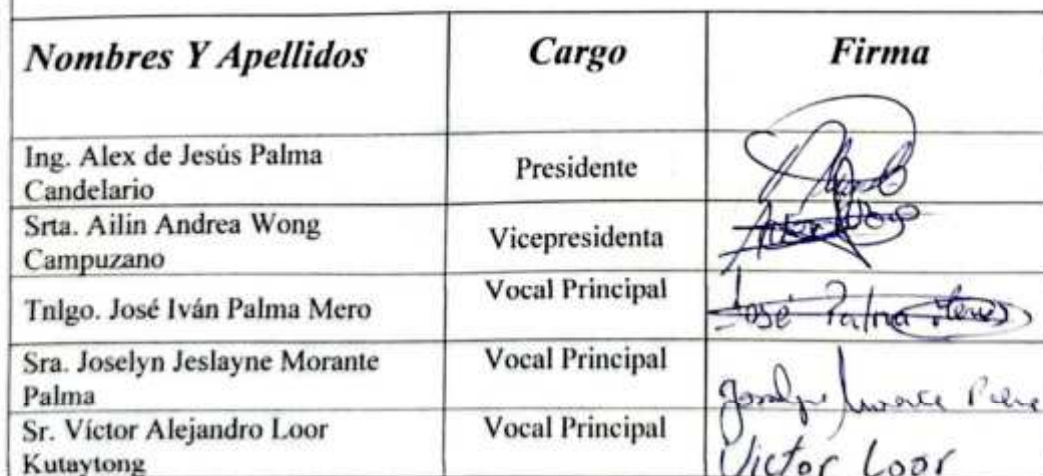 Nombres Y Apellidos Cargo Firma
Ing. Alex de Jesús Palma
Candelario
Presidente
Srta. Ailin Andrea Wong
Campuzano
Vicepresidenta
Tnlgo. José Iván Palma Mero
Vocal Principal
José Palma
Sra. Joselyn Jeslayne Morante
Palma
Vocal Principal
Sr. Víctor Alejandro Loor
Kutaytong
Vocal Principal
Victor Loor